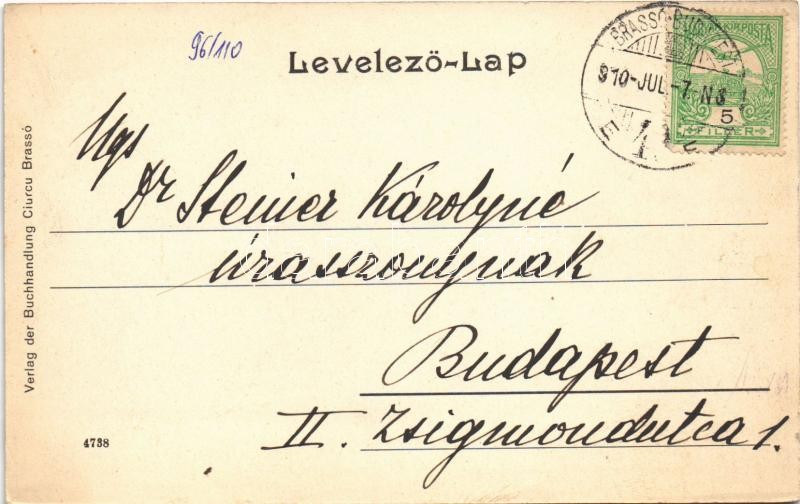 96/110
Levelező-Lap
BRASSÓ-BUDAPEST
910-JUL.-7. N8
KIR. POSTA
5
FILLÉR
Ngs
Dr Steiner Károlyné
úrasszonynak
Budapest
II. Zsigmondutca 1.
Verlag der Buchhandlung Ciurcu Brassó
4738